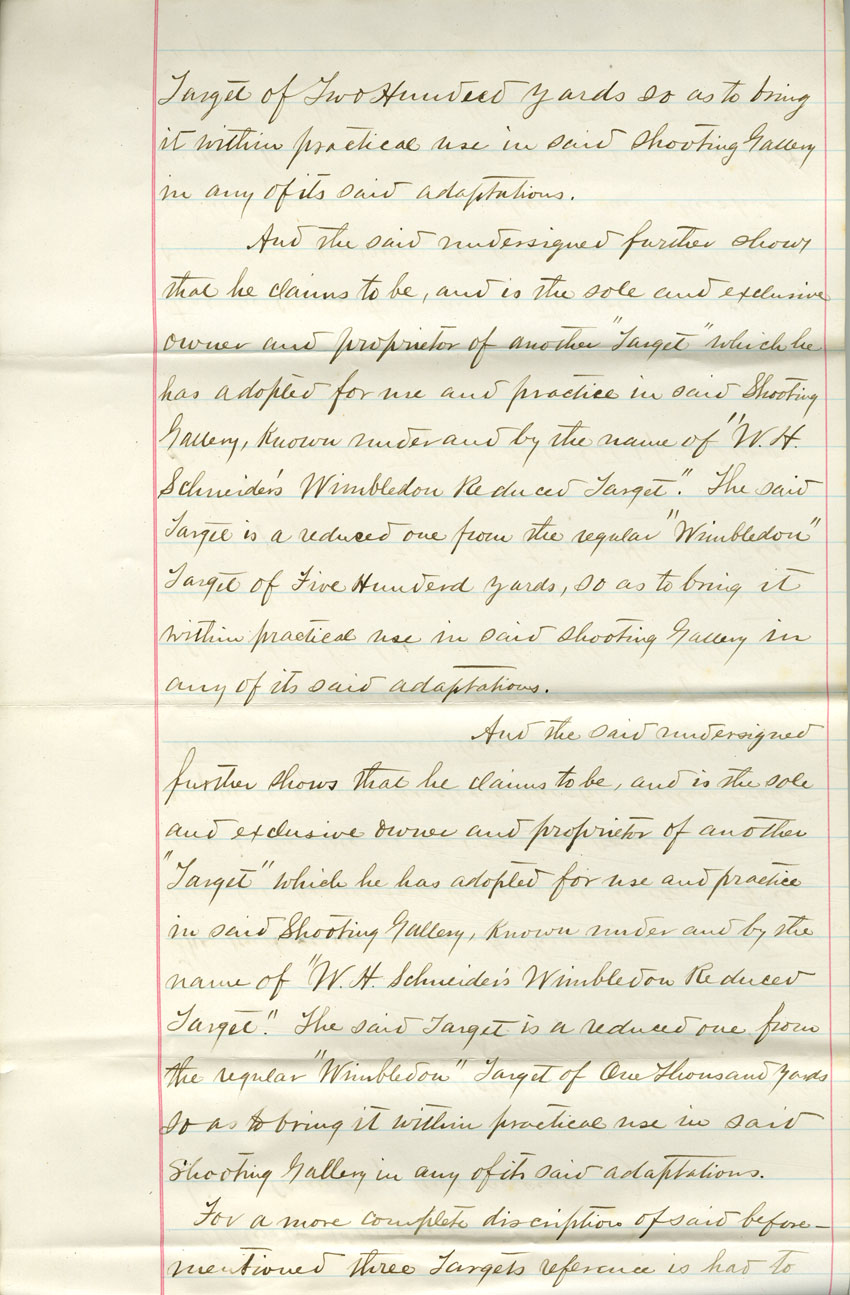 Target of Two Hundred yards so as to bring
it within practical use in said Shooting Gallery
in any of its said adaptations.
And the said undersigned further shows
that he claims to be, and is the sole and exclusive
owner and proprietor of another "Target" which he
has adopted for use and practice in said Shooting
Gallery, Known under and by the name of "W. H.
Schneider's Wimbledon Reduced Target". The said
Target is a reduced one from the regular "Wimbledon"
Target of Five Hunderd yards, so as to bring it
within practical use in said Shooting Gallery in
any of its said adaptations.
And the said undersigned
further shows that he claims to be, and is the sole
and exclusive owner and proprietor of another
"Target" which he has adopted for use and practice
in said Shooting Gallery, Known under and by the
name of "W. H. Schneider's Wimbledon Reduced
Target". The said Target is a reduced one from
the regular "Wimbledon" Target of One Thousand Yards
so as to bring it within practical use in said
Shooting Gallery in any of its said adaptations.
For a more complete discription of said before-
mentioned three Targets reference is had to